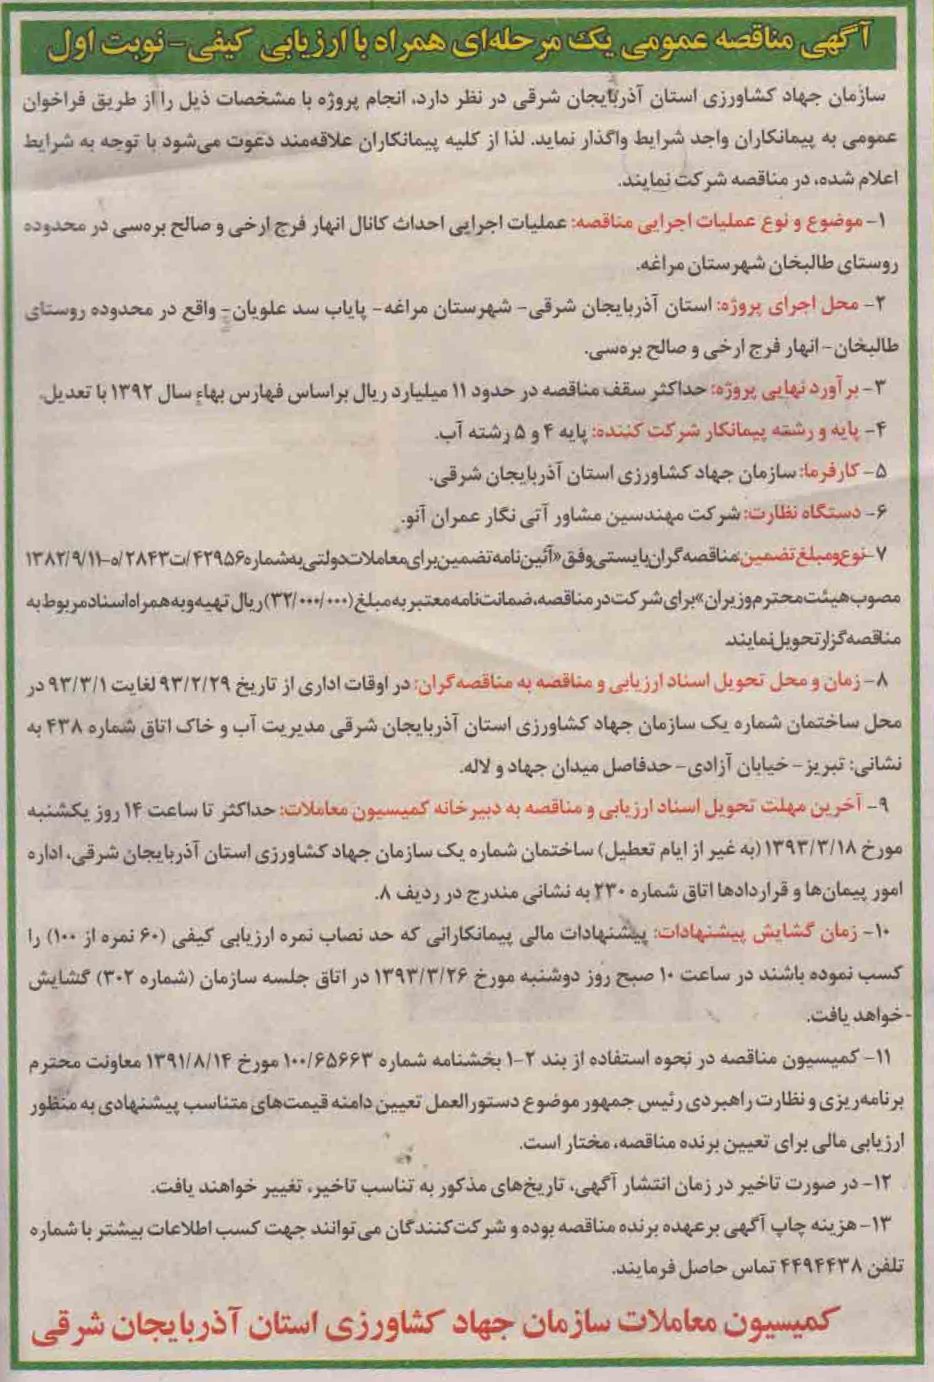 آگهی مناقصه عمومی یک مرحله‌ای همراه با ارزیابی کیفی- نوبت اول
سازمان جهاد کشاورزی استان آذربایجان شرقی در نظر دارد، انجام پروژه با مشخصات ذیل را از طریق فراخوان
عمومی به پیمانکاران واجد شرایط واگذار نماید. لذا از کلیه پیمانکاران علاقه‌مند دعوت می‌شود با توجه به شرایط
اعلام شده، در مناقصه شرکت نمایند.
۱- موضوع و نوع عملیات اجرایی مناقصه: عملیات اجرایی احداث کانال انهار فرج ارخی و صالح بره‌سی در محدوده
روستای طالبخان شهرستان مراغه.
۲- محل اجرای پروژه: استان آذربایجان شرقی- شهرستان مراغه- پایاب سد علویان- واقع در محدوده روستای
طالبخان- انهار فرج ارخی و صالح بره‌سی.
۳- برآورد نهایی پروژه: حداکثر سقف مناقصه در حدود ۱۱ میلیارد ریال براساس فهارس بهاء سال ۱۳۹۲ با تعدیل.
۴- پایه و رشته پیمانکار شرکت کننده: پایه ۴ و ۵ رشته آب.
۵- کارفرما: سازمان جهاد کشاورزی استان آذربایجان شرقی.
۶- دستگاه نظارت: شرکت مهندسین مشاور آتی نگار عمران آنو.
۷- نوع و مبلغ تضمین: مناقصه گران بایستی وفق «آئین نامه تضمین برای معاملات دولتی به شماره ۴۲۹۵۶/ت۲۸۴۳/ه-۱۳۸۲/۹/۱۱
مصوب هیئت محترم وزیران» برای شرکت در مناقصه، ضمانت نامه معتبر به مبلغ (۳۲/۰۰۰/۰۰۰) ریال تهیه و به همراه اسناد مربوط به
مناقصه گزار تحویل نمایند.
۸- زمان و محل تحویل اسناد ارزیابی و مناقصه به مناقصه گران: در اوقات اداری از تاریخ ۹۳/۲/۲۹ لغایت ۹۳/۳/۱ در
محل ساختمان شماره یک سازمان جهاد کشاورزی استان آذربایجان شرقی مدیریت آب و خاک اتاق شماره ۴۳۸ به
نشانی: تبریز- خیابان آزادی- حدفاصل میدان جهاد و لاله.
۹- آخرین مهلت تحویل اسناد ارزیابی و مناقصه به دبیرخانه کمیسیون معاملات: حداکثر تا ساعت ۱۴ روز یکشنبه
مورخ ۱۳۹۳/۳/۱۸ (به غیر از ایام تعطیل) ساختمان شماره یک سازمان جهاد کشاورزی استان آذربایجان شرقی، اداره
امور پیمان‌ها و قراردادها اتاق شماره ۲۳۰ به نشانی مندرج در ردیف ۸.
۱۰- زمان گشایش پیشنهادات: پیشنهادات مالی پیمانکارانی که حد نصاب نمره ارزیابی کیفی (۶۰ نمره از ۱۰۰) را
کسب نموده باشند در ساعت ۱۰ صبح روز دوشنبه مورخ ۱۳۹۳/۳/۲۶ در اتاق جلسه سازمان (شماره ۳۰۲) گشایش
خواهد یافت.
۱۱- کمیسیون مناقصه در نحوه استفاده از بند ۲-۱ بخشنامه شماره ۱۰۰/۶۵۶۶۳ مورخ ۱۳۹۱/۸/۱۴ معاونت محترم
برنامه‌ریزی و نظارت راهبردی رئیس جمهور موضوع دستورالعمل تعیین دامنه قیمت‌های متناسب پیشنهادی به منظور
ارزیابی مالی برای تعیین برنده مناقصه، مختار است.
۱۲- در صورت تاخیر در زمان انتشار آگهی، تاریخ‌های مذکور به تناسب تاخیر، تغییر خواهند یافت.
۱۳- هزینه چاپ آگهی برعهده برنده مناقصه بوده و شرکت‌کنندگان می‌توانند جهت کسب اطلاعات بیشتر با شماره
تلفن ۴۴۹۴۴۳۸ تماس حاصل فرمایند.
کمیسیون معاملات سازمان جهاد کشاورزی استان آذربایجان شرقی